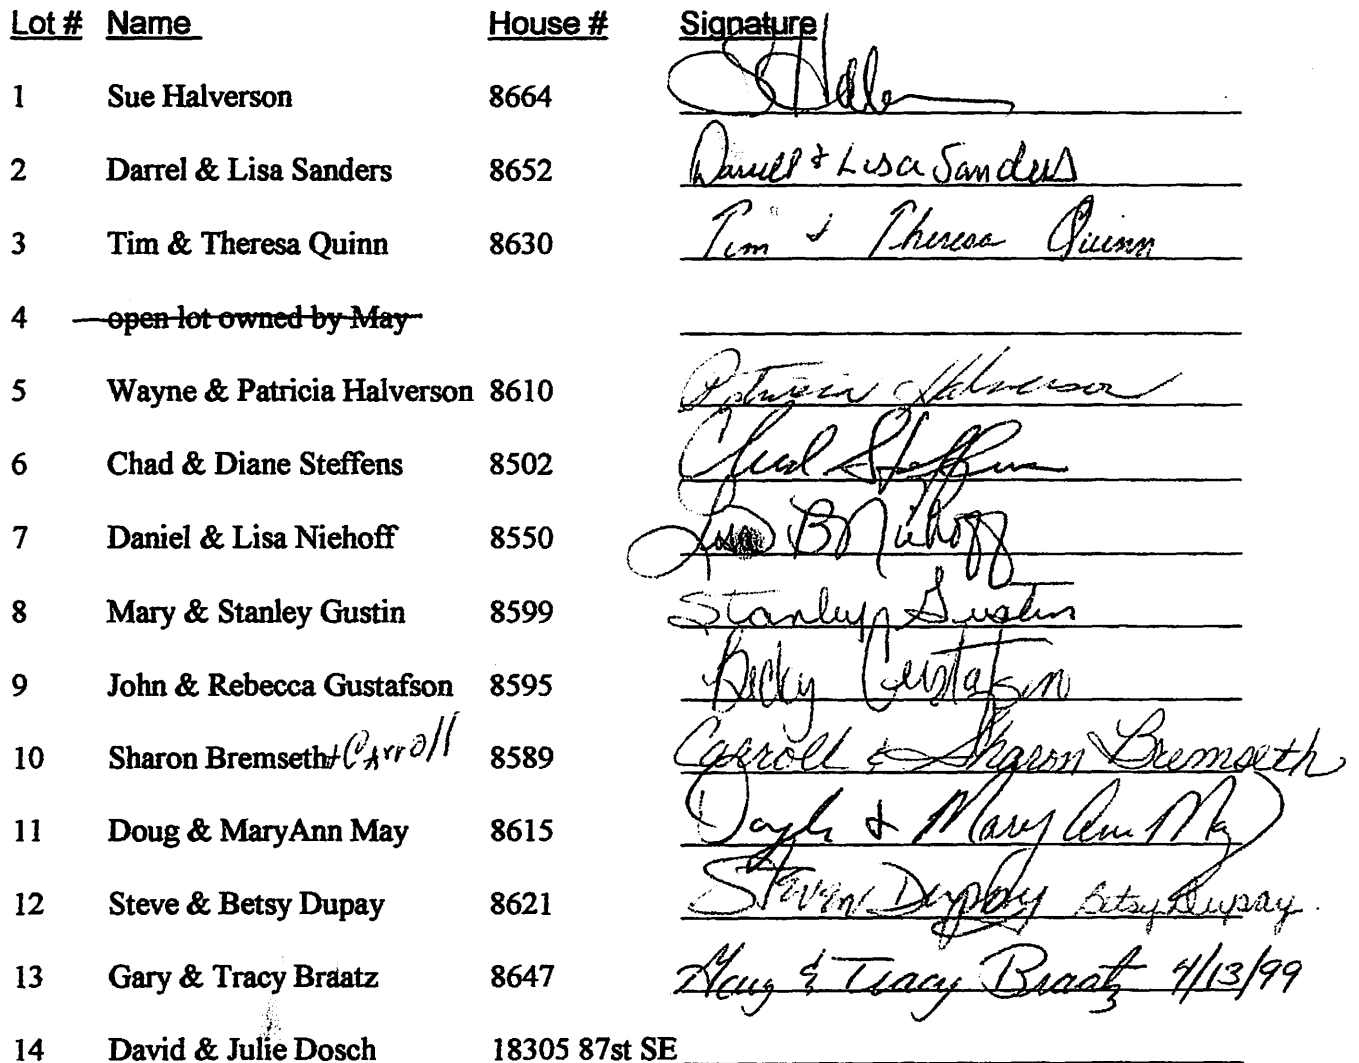 Lot # Name House # Signature
1 Sue Halverson 8664 S Hal
2 Darrel & Lisa Sanders 8652 Darrell & Lisa Sanders
3 Tim & Theresa Quinn 8630 Tim & Theresa Quinn
4 open lot owned by May
5 Wayne & Patricia Halverson 8610 Patricia Halverson
6 Chad & Diane Steffens 8502 Chad Steffens
7 Daniel & Lisa Niehoff 8550 Lisa B Niehoff
8 Mary & Stanley Gustin 8599 Stanley Gustin
9 John & Rebecca Gustafson 8595 Becky Gustafson
10 Sharon Bremseth + Carroll 8589 Carroll & Sharon Bremseth
11 Doug & MaryAnn May 8615 & Mary Ann May
12 Steve & Betsy Dupay 8621 Steven Dupay Betsy Dupay
13 Gary & Tracy Braatz 8647 Gary & Tracy Braatz 4/13/99
14 David & Julie Dosch 18305 87st SE